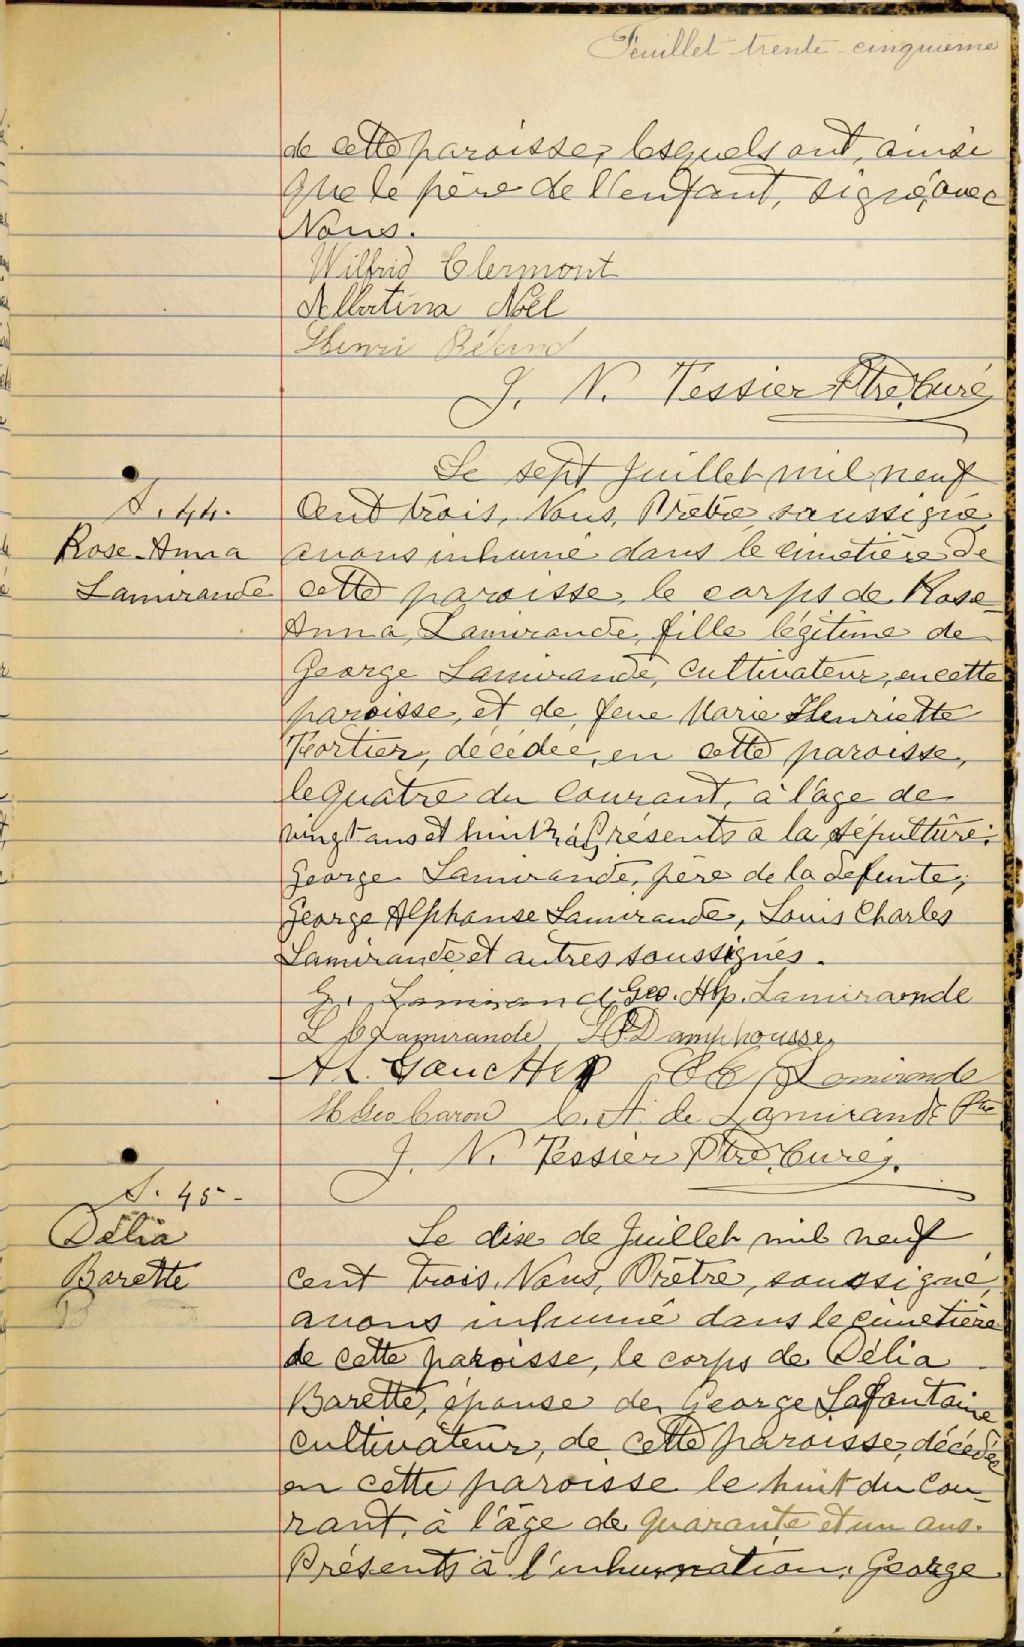 Feuillet trente-cinquième
de cette paroisse, lesquels ont, ainsi
que le père de l'enfant, signé, avec
Nous.
Wilfrid Clermont
Albertina Noël
Henri Béland
J. N. Tessier Ptre. Curé
S. 44.
Rose-Anna
Lamirande
Le sept Juillet mil neuf
Cent trois, Nous, Prêtre soussigné
avons inhumé dans le cimetière de
cette paroisse, le corps de Rose
Anna Lamirande, fille légitime de
George Lamirande, cultivateur, en cette
paroisse, et de feue Marie Henriette
Fortier, décédée, en cette paroisse,
le quatre du Courant, à l'âge de
vingt ans et huit Présents à la sépulture:
George Lamirande, père de la défunte,
George Alphonse Lamirande, Louis Charles
Lamirande et autres soussignés.
G. Lamirande Geo. Alp. Lamirande
L C Lamirande Damphousse
A L. Gaucher Lamirande
Caron C. A. de Lamirande Ptre
J. N. Tessier Ptre. Curé.
S. 45-
Délia
Barette
Le dix de Juillet mil neuf
cent trois, Nous, Prêtre, soussigné,
avons inhumé dans le cimetière
de cette paroisse, le corps de Délia
Barette, épouse de George Lafontaine
cultivateur, de cette paroisse, décédée
en cette paroisse le huit du Cou-
rant, à l'âge de quarante et un ans.
Présents à l'inhumation, George